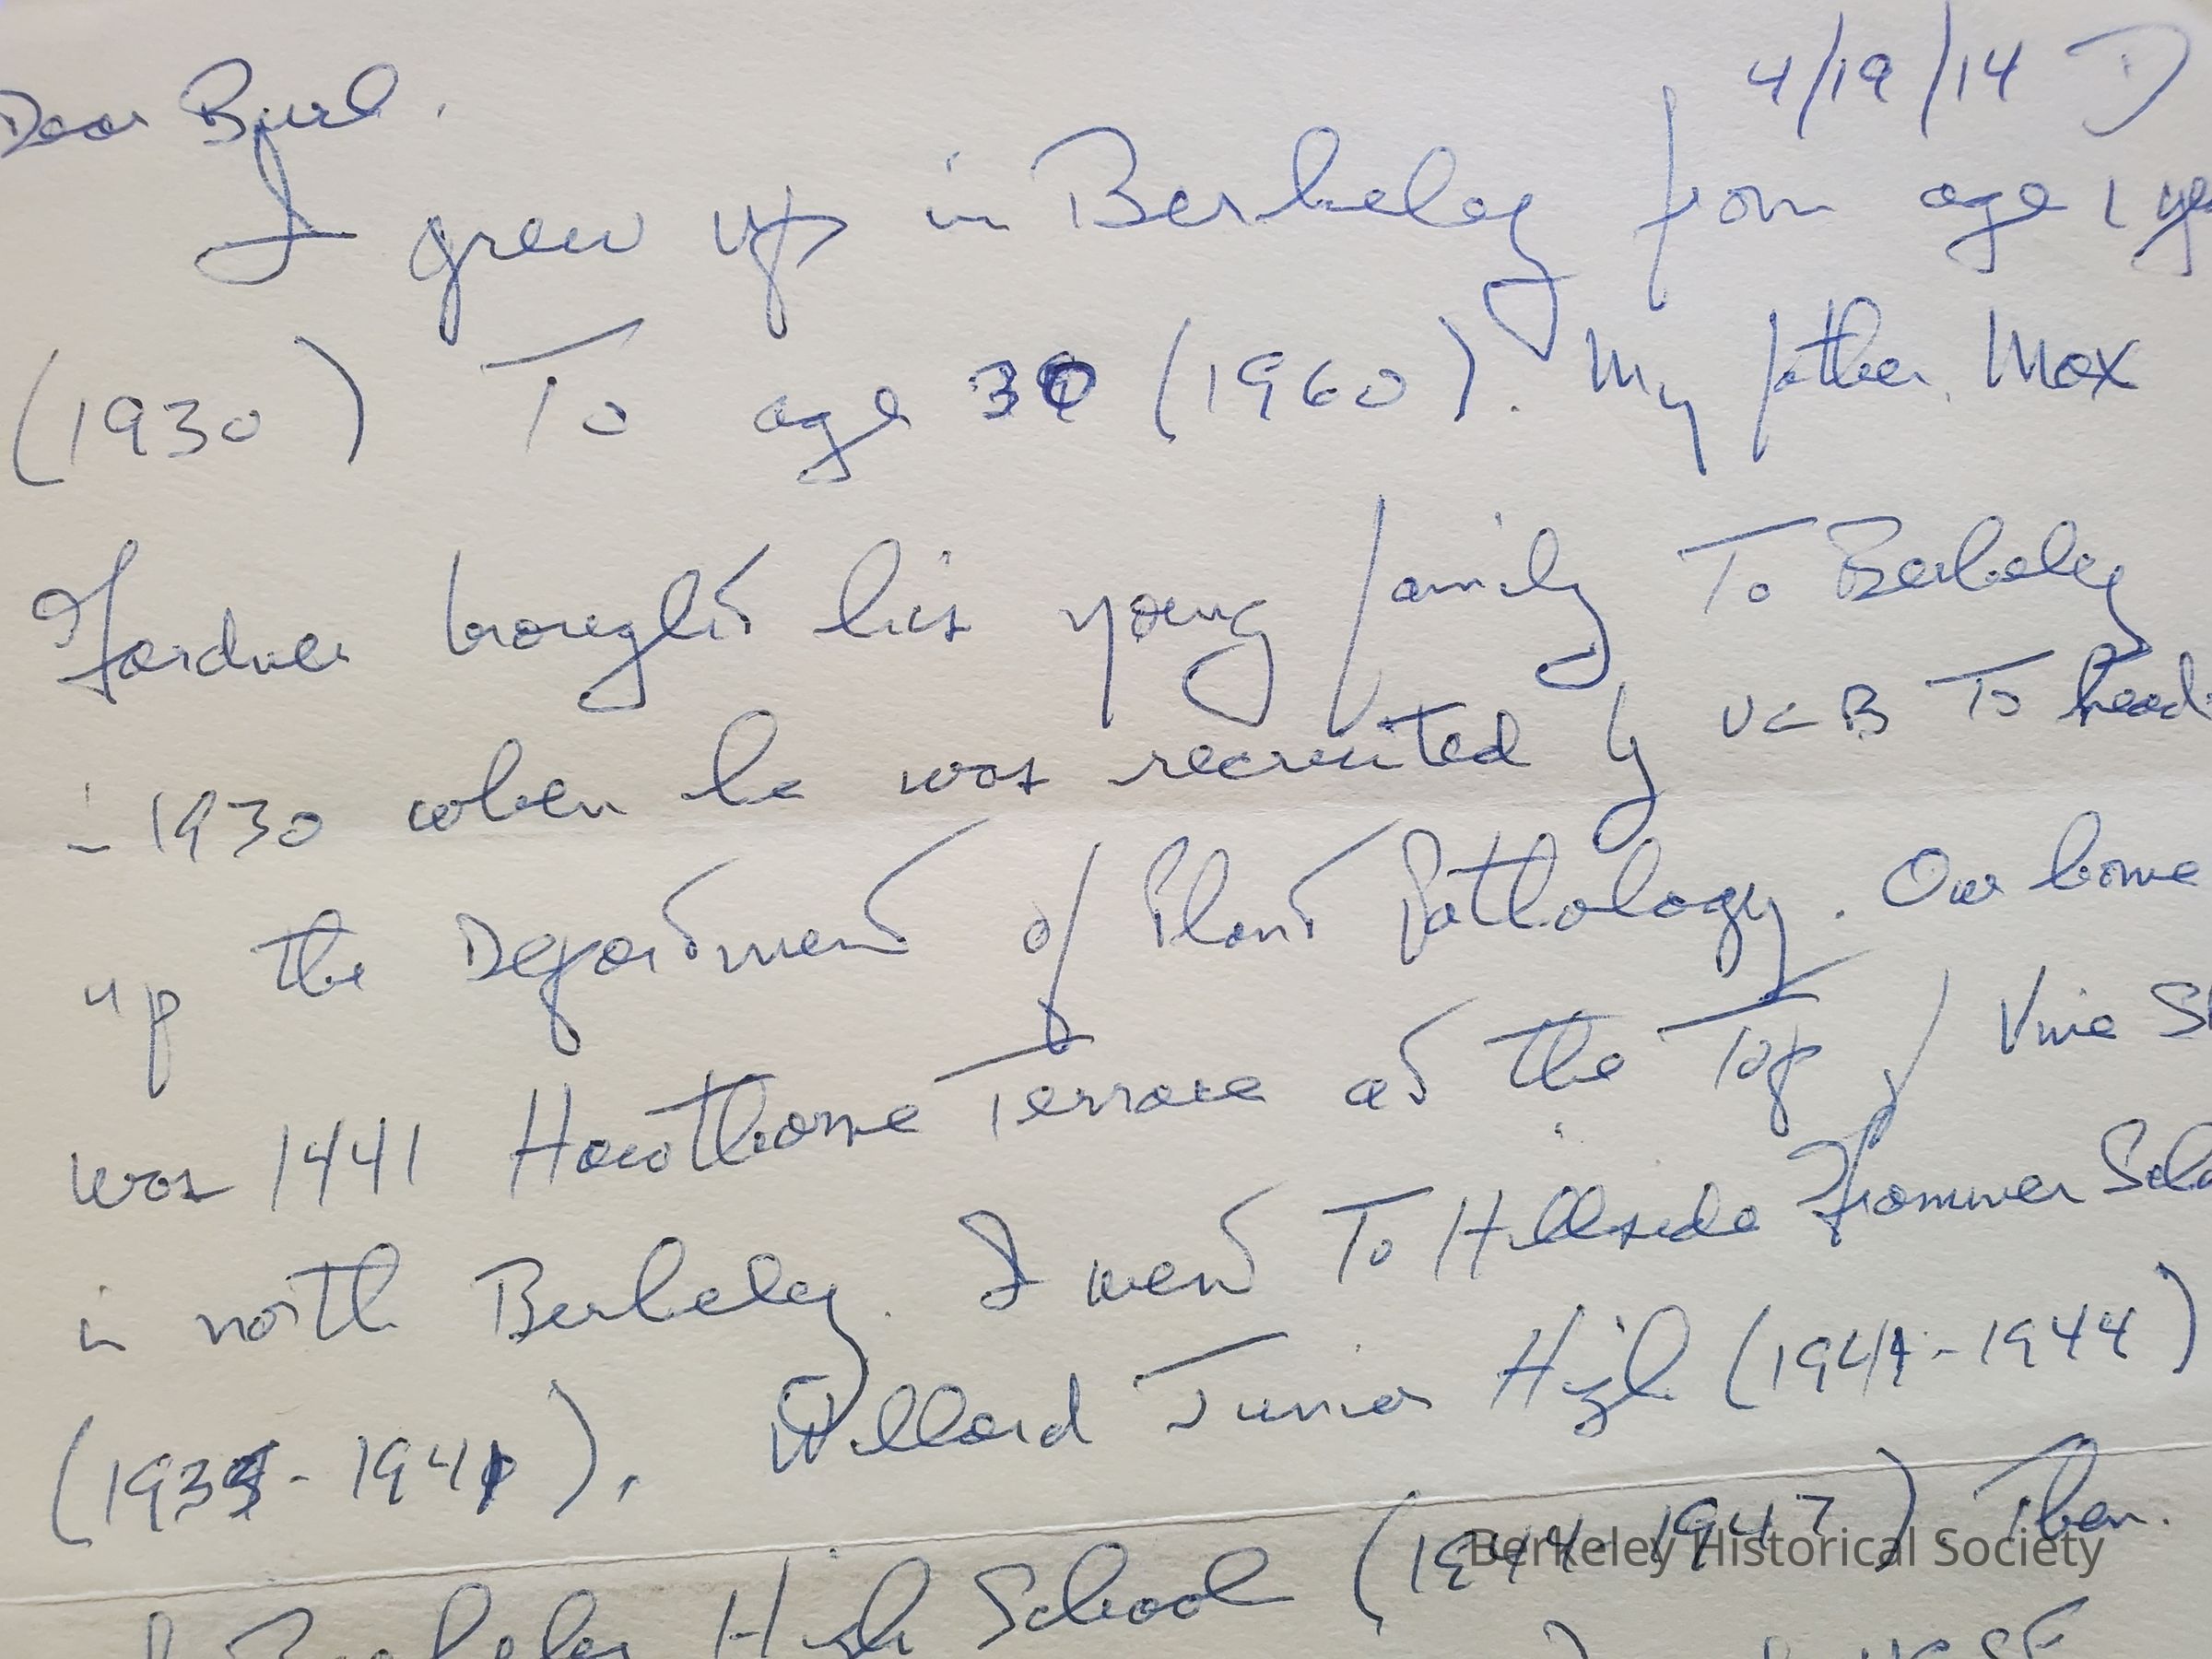 4/19/14 D
Dear Burl.
I grew up in Berkeley from age 1
(1930) To age 30 (1960). My father, Max
Gardner brought his young family To Berkeley
in 1930 when he was recruited by UCB To head
up the Department of Plant Pathology. Our home
was 1441 Hawthorne Terrace at the Top of Vine
in north Berkeley. I went To Hillside Grammer
(1935-1941), Willard Junior High (1941-1944)
Berkeley High School (1944-1947). Then.
UCSF
Berkeley Historical Society